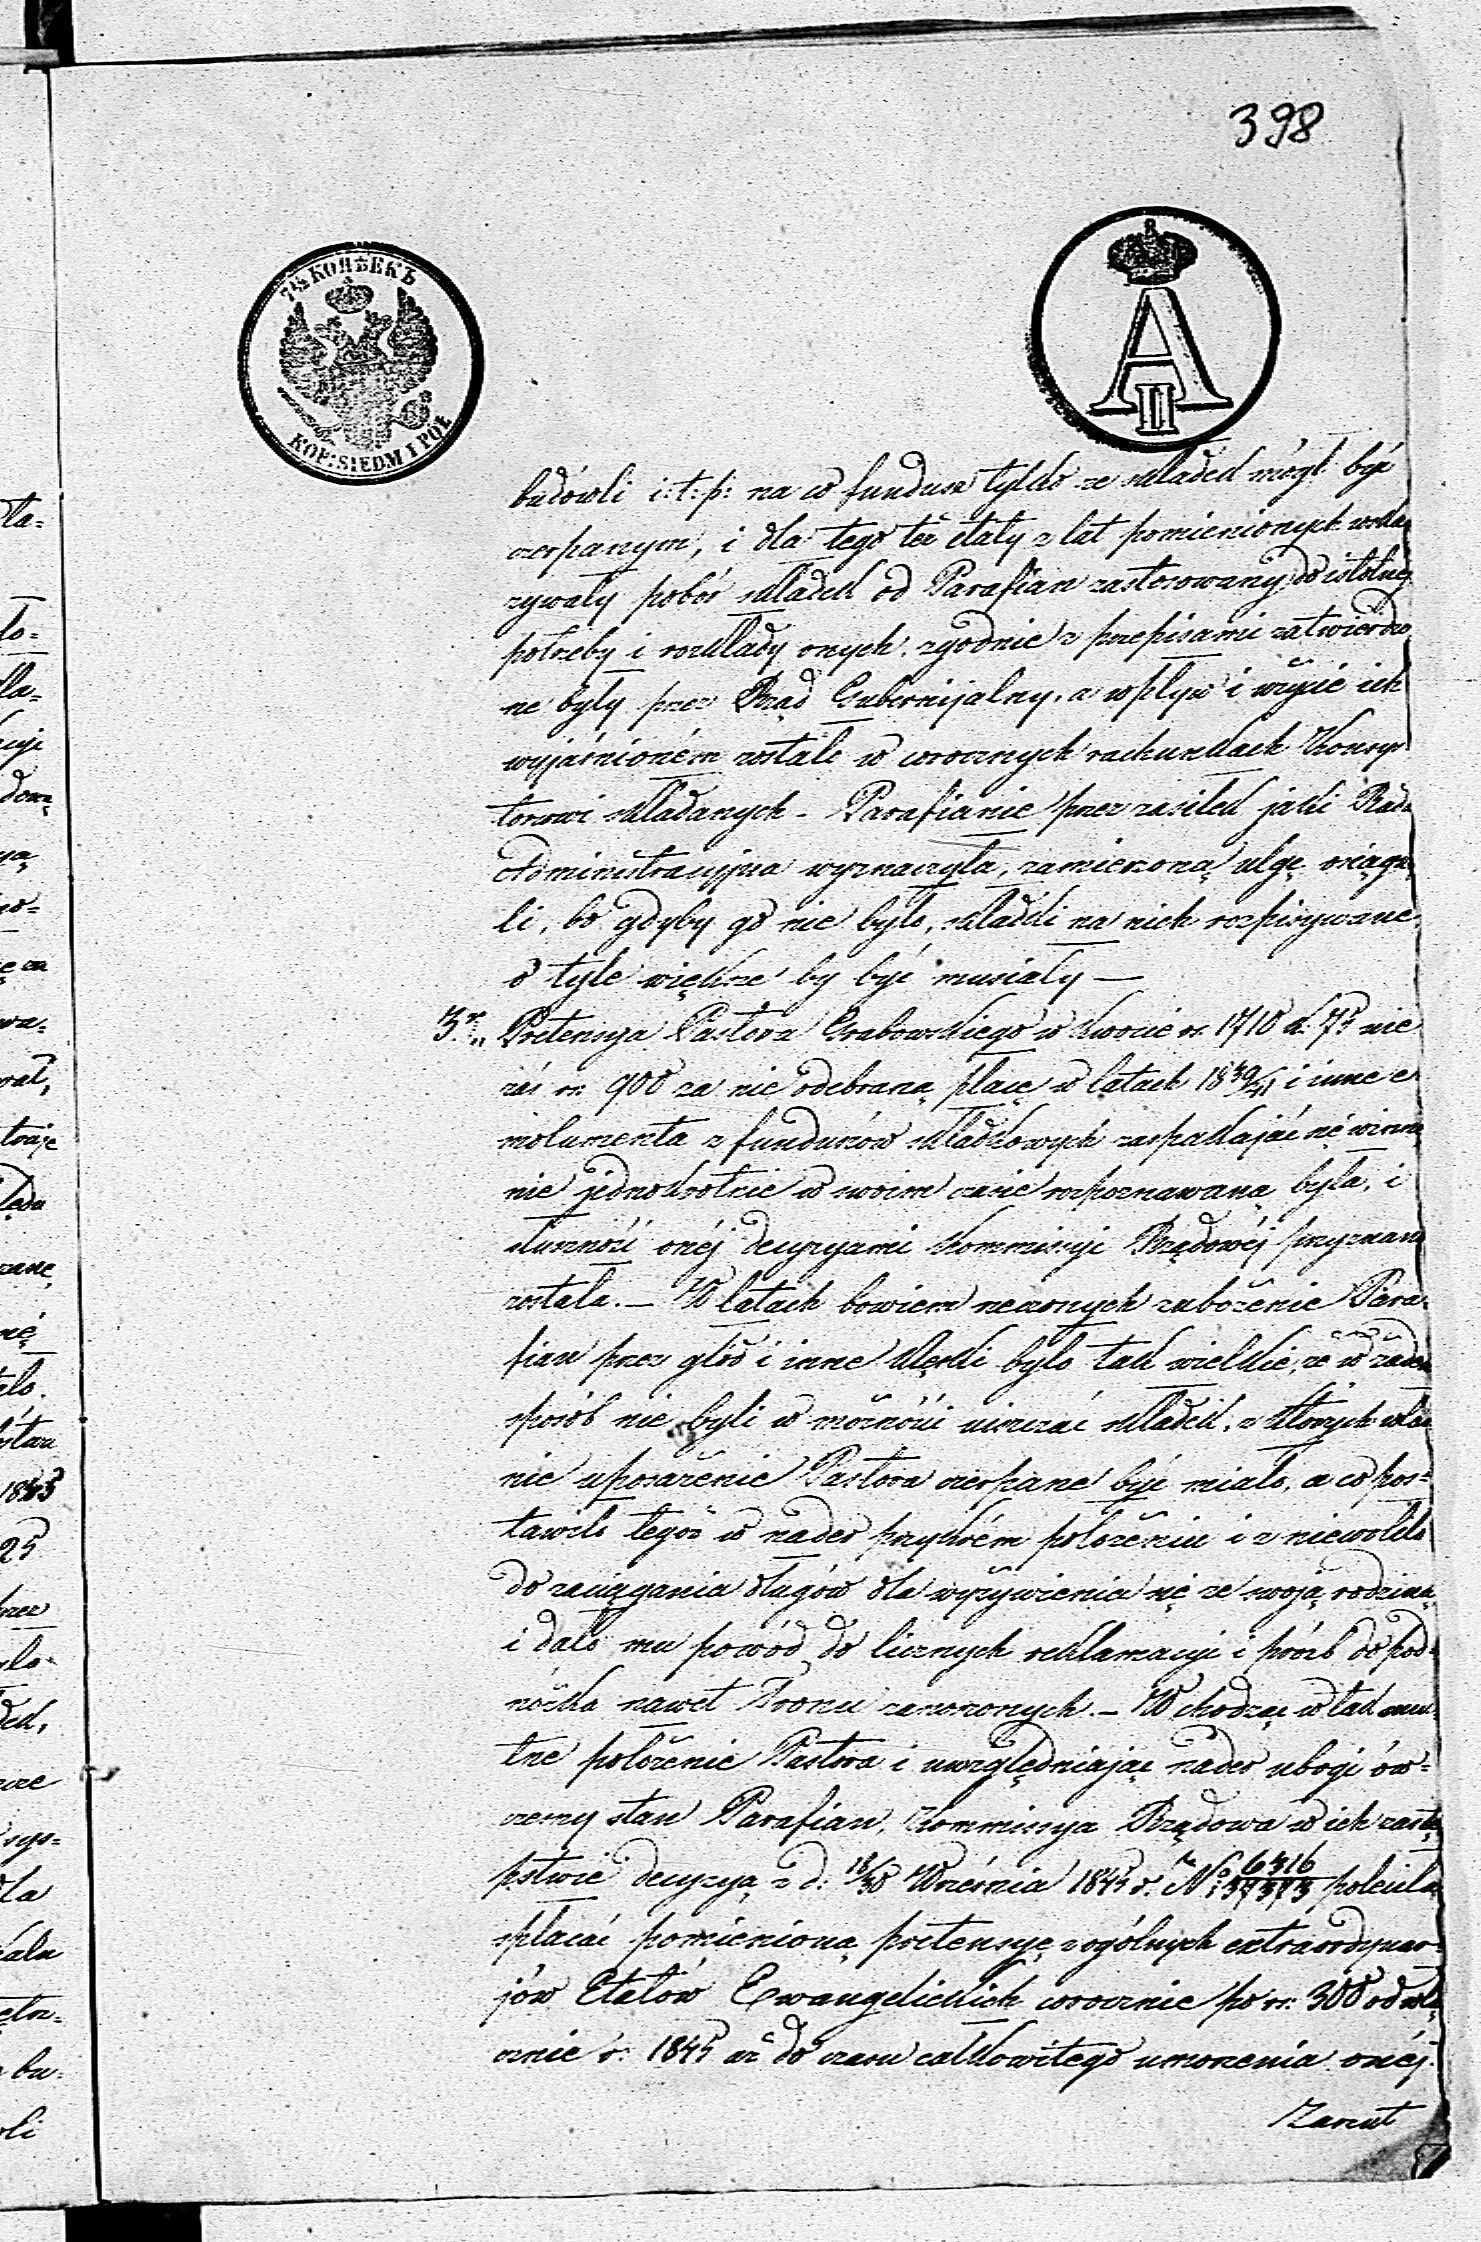 398
7½ КОПѢЕКЪ
KOP: SIEDM I PÓŁ
A II
budowli i: t: p: na co fundusz tylko ze składek mógł być
czerpanym, i dla tego też etaty z lat pomienionych wska-
zywały pobór składek od Parafian zastosowany do istotnej
potrzeby i rozkłady onych zgodnie z przepisami zatwierdzo
ne były przez Rząd Gubernijalny, a wpływ i użycie ich
wyjaśnioném zostało w corocznych rachunkach Konsys
torzowi składanych. - Parafianie przez zasiłek jaki Rada
Administracyjna wyznaczyła, zamierzoną ulgę osiągnę
li, bo gdyby go nie było, składki na nich rozpisywane
o tyle większe by być musiały —
3. Pretensya Pastora Grabowskiego w kwocie rs. 1710 k. 75 nie
zaś rs. 900 za nie odebraną płacę w latach 1839/41 i inne e-
molumenta z funduszów składkowych zaspakajać się winna
nie jednokrotnie w swoim czasie rozpoznawaną była, i
słuszność onéj decyzyami Kommissyi Rządowéj przyznaną
została. — W latach bowiem rzeczonych zubożenie Para-
fian przez głód i inne klęski było tak wielkie, że w żaden
sposób nie byli w możności uiszczać składek, z których właś
nie uposażenie Pastora czerpane być miało, a co pos-
tawiło tegoż w nader przykrém położeniu i zniewoliło
do zaciągania długów dla wyżywienia się ze swoją rodziną
i dało mu powód do licznych reklamacyi i próśb do pod-
nóżka nawet Tronu zanoszonych. — Wchodząc w tak smu
tne położenie Pastora i uwzględniając nader ubogi ów-
czesny stan Parafian, Kommissya Rządowa w ich zastę
pstwie decyzyą z d: 18/30 Września 1845 r. N: 6316/37373 poleciła
spłacać pomienioną pretensyę z ogólnych extraordynar-
jów Etatów Ewangelickich corocznie po rs. 300 od włą
cznie r. 1845 aż do czasu całkowitego umorzenia onéj.
Zarzut